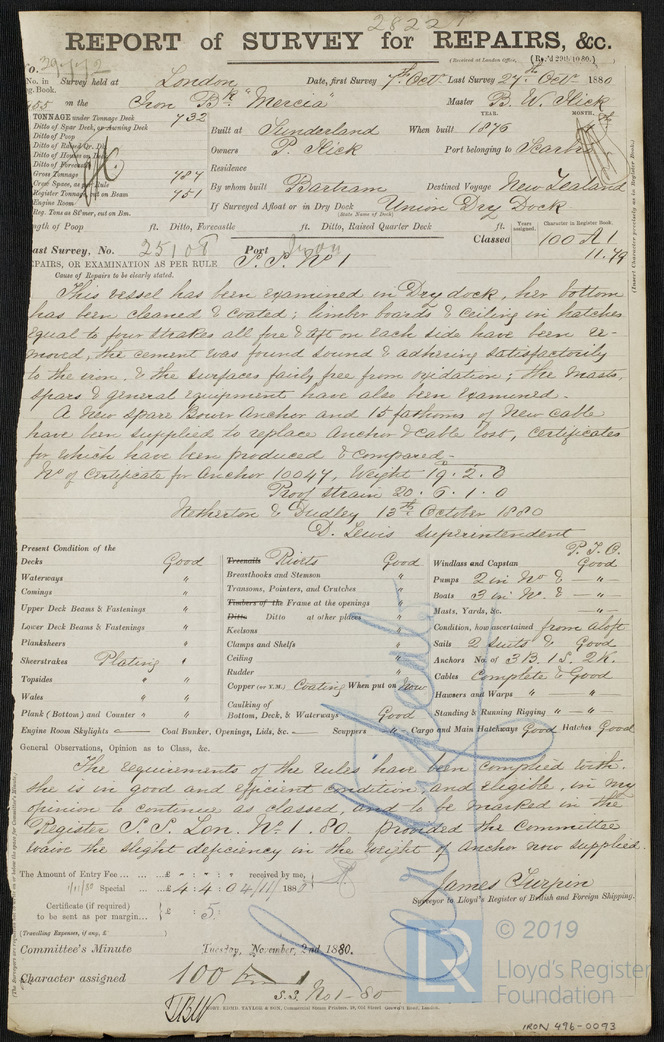 28221
REPORT of SURVEY for REPAIRS, &c.
(Received at London Office, (Rec'd 29/10/80.)
No. 29772
No. in Reg. Book. Survey held at London Date, first Survey 7th Oct. Last Survey 27th Oct 1880
on the Iron Bk "Mercia" Master B. W. Flick
TONNAGE under Tonnage Deck 732
YEAR. MONTH.
Ditto of Spar Deck, or Awning Deck
Built at Sunderland When built 1876
Ditto of Poop
Ditto of Raised Qr. Dk.
Owners P. Flick Port belonging to Scarbro
Ditto of Houses on Deck
Ditto of Forecastle
Residence
Gross Tonnage 787
Crew Space, as per Rule
By whom built Bartram Destined Voyage New Zealand
Register Tonnage, cut on Beam 751
Engine Room
If Surveyed Afloat or in Dry Dock Union Dry Dock
(State Name of Dock)
Reg. Tons as St'mer, cut on Bm.
Length of Poop ft. Ditto, Forecastle ft. Ditto, Raised Quarter Deck ft.
Years assigned. Character in Register Book.
Last Survey, No. 25108 Port Classed 100 A 1
S. S. No 1 11.79
REPAIRS, OR EXAMINATION AS PER RULE
Cause of Repairs to be clearly stated.
(Insert Character precisely as in Register Book.)
This vessel has been examined in Dry dock, her bottom
has been cleaned & coated; limber boards & ceiling in hatches
equal to four strakes all fore & aft on each side have been re-
moved, the cement was found sound & adhering satisfactorily
to the iron, & the surfaces fairly free from oxidation; the masts,
spars & general equipment have also been examined.
A New spare Bower Anchor and 15 fathoms of New cable
have been supplied to replace Anchor & Cable lost, certificates
for which have been produced & compared.
No of Certificate for Anchor 10047, Weight 19. 2. 0
Proof strain 20. 6. 1. 0
Netherton & Dudley 13th October 1880
D. Lewis Superintendent
P. T. O.
Present Condition of the
Decks Good
Waterways "
Comings "
Upper Deck Beams & Fastenings "
Lower Deck Beams & Fastenings "
Planksheers "
Sheerstrakes Plating "
Topsides " "
Wales " "
Plank (Bottom) and Counter " "
Treenails Rivets Good
Breasthooks and Stemson "
Transoms, Pointers, and Crutches "
Timbers of the Frame at the openings "
Ditto Ditto at other places "
Keelsons "
Clamps and Shelfs "
Ceiling "
Rudder "
Copper (or Y.M.) Coating When put on Now
Caulking of Bottom, Deck, & Waterways Good
Windlass and Capstan Good
Pumps 2 in No & — " —
Boats 3 in No. & — " —
Masts, Yards, &c. — " —
Condition, how ascertained from aloft
Sails 2 suits & Good
Anchors No. of 3B. 1S. 2K.
Cables Complete & Good
Hawsers and Warps " — " —
Standing & Running Rigging " — " —
Engine Room Skylights — Coal Bunker, Openings, Lids, &c. — Scuppers — " — Cargo and Main Hatchways Good Hatches Good
General Observations, Opinion as to Class, &c.
The requirements of the rules have been complied with.
She is in good and efficient condition, and eligible, in my
opinion to continue as classed, and to be marked in the
Register S. S. Lon. No. 1. 80. provided the Committee
waive the slight deficiency in the weight of Anchor now supplied.
The Amount of Entry Fee ... £ " : " : " received by me,
1/11/80 Special ... £ 4 : 4 : 0 4/11/ 1880
James Turpin
Surveyor to Lloyd's Register of British and Foreign Shipping.
Certificate (if required) to be sent as per margin... £ : 5 :
(Travelling Expenses, if any, £ )
Committee's Minute Tuesday, November, 2nd 1880.
Character assigned 100 A 1
S.S. No 1 - 80
© 2019
LR
Lloyd's Register
Foundation
IRON 496-0093